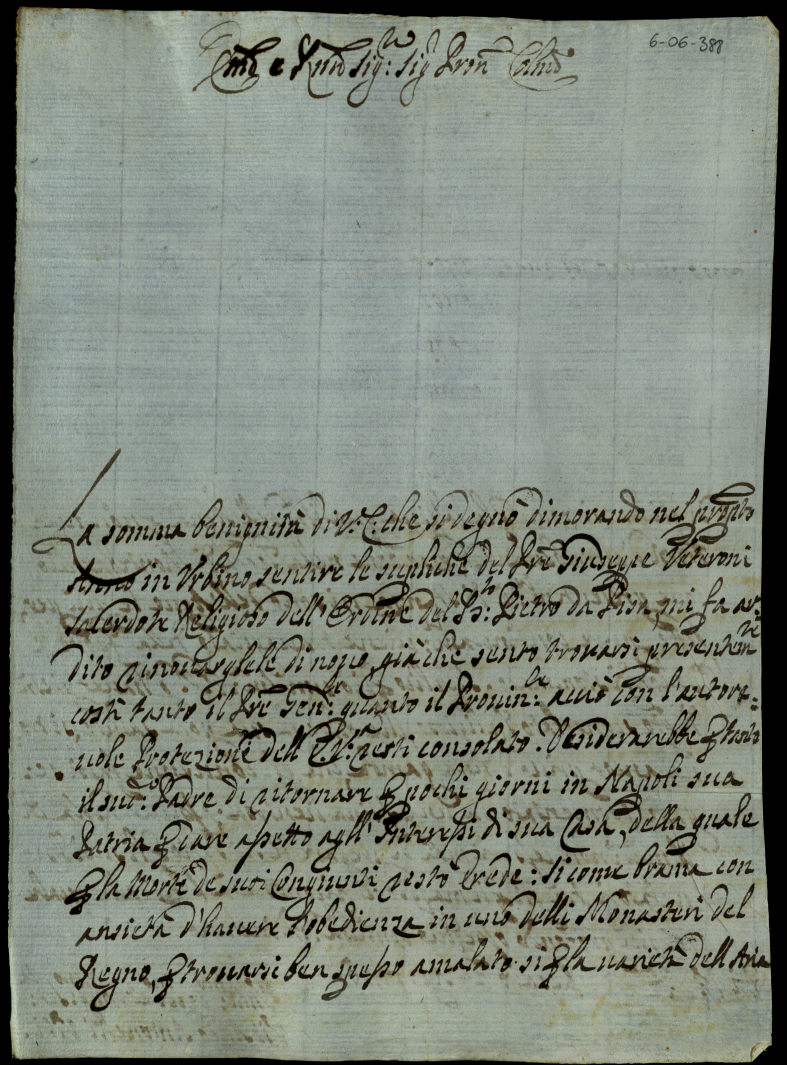 6-06-388
Em̃o e Rmo Sig:r Sig.r Pron Colmo
La somma benignità di V: E: che si degnò dimorando nel prossto
Anno in Urbino sentire le supliche del Pre Giuseppe Veteroni
Sacerdote Religioso dell'Ordine del B:to Pietro da Pisa, mi fa ar=
dito rinovargliele di nuovo, già che sento trovarsi presentemte
costì tanto il Pre Gen:le quanto il Provin:le acciò con l'autore=
vole Protezione dell'E.V: resti consolato. Desiderarebbe ꝑ tanto
il sud:o Padre di ritornare ꝑ pochi giorni in Napoli sua
Patria ꝑ dare assetto agll'Interessi di sua Casa, della quale
ꝑ la Morte de suoi Congiunti restò Erede: si come brama con
ansietà d'havere l'obedienza in uno delli Monasteri del
Regno, ꝑ trovarsi ben spesso amalato si ꝑ la varietà dell'Aria